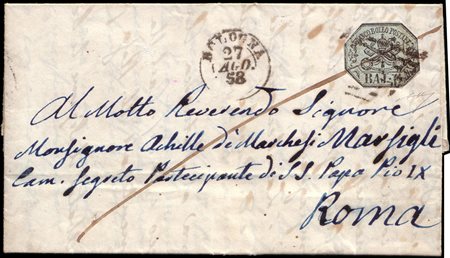 BOLOGNA
27
AGO.
58
FRANCO BOLLO POSTALE
BAJ.
Al Molto Reverendo Signore
Monsignore Achille de Marchesi Marsigli
Cam. Segreto Partecipante di S.S. Papa Pio IX
Roma